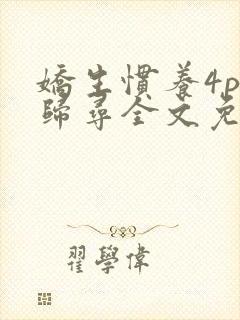 嬌生慣養4p
歸尋全文免
翟學偉